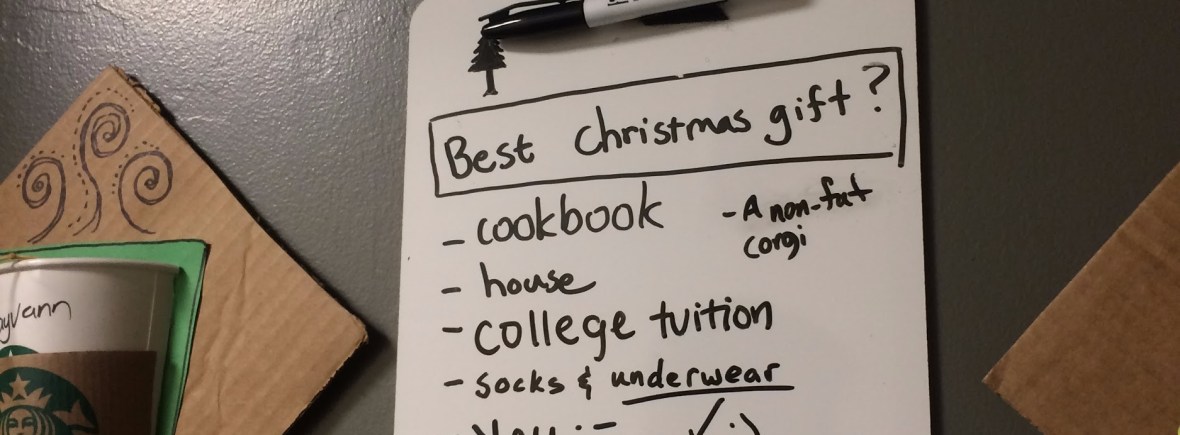 Best Christmas gift?
- cookbook
- A non-fat
corgi
- house
- college tuition
- socks & underwear